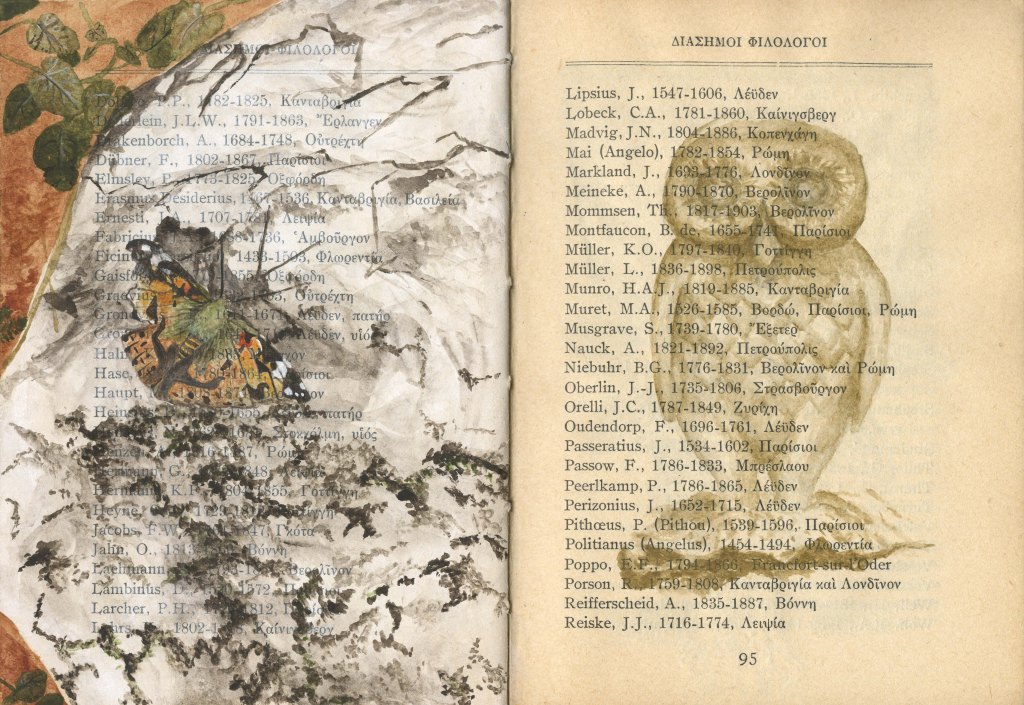 ΔΙΑΣΗΜΟΙ ΦΙΛΟΛΟΓΟΙ
P.P., 1782-1825, Κανταβριγία
J.L.W., 1791-1863, Ἔρλανγεν
Drakenborch, A., 1684-1748, Οὐτρέχτη
Dübner, F., 1802-1867, Παρίσιοι
Elmsley, P., 1773-1825, Ὀξφόρδη
Erasmus Desiderius, 1467-1536, Κανταβριγία, Βασιλεία
Ernesti, 1707-1781, Λειψία
Fabricius, J.A., 1736, Ἁμβοῦργον
Ficin 1433-1503, Φλωρεντία
Gaisfo 1855, Ὀξφόρδη
Graevius Οὐτρέχτη
Gron 1611-1671, Λέϋδεν, πατήρ
Λέϋδεν, υἱός
Halm
Hase,
Haupt, Βερολῖνον
Heinsius, 1655, πατήρ
Στοκχόλμη, υἱός
Ρώμη
Hermann, G., 1848,
Hermann, K.F., 1804-1855, Γοττίγγη
Heyne,
Jacobs, F.W., 1847, Γκότα
Jahn, O., 1813- Βόννη
Lachmann, Βερολῖνον
Lambinus, D., 1572,
Larcher, P.H., 1812,
Lehrs, 1802- Καίνιγσβεργ
ΔΙΑΣΗΜΟΙ ΦΙΛΟΛΟΓΟΙ
Lipsius, J., 1547-1606, Λέϋδεν
Lobeck, C.A., 1781-1860, Καίνιγσβεργ
Madvig, J.N., 1804-1886, Κοπενχάγη
Mai (Angelo), 1782-1854, Ρώμη
Markland, J., 1693-1776, Λονδῖνον
Meineke, A., 1790-1870, Βερολῖνον
Mommsen, Th., 1817-1903, Βερολῖνον
Montfaucon, B. de, 1655-1741, Παρίσιοι
Müller, K.O., 1797-1840, Γοττίγγη
Müller, L., 1836-1898, Πετρούπολις
Munro, H.A.J., 1819-1885, Κανταβριγία
Muret, M.A., 1526-1585, Βορδώ, Παρίσιοι, Ρώμη
Musgrave, S., 1739-1780, Ἔξετερ
Nauck, A., 1821-1892, Πετρούπολις
Niebuhr, B.G., 1776-1831, Βερολῖνον καὶ Ρώμη
Oberlin, J.-J., 1735-1806, Στρασβοῦργον
Orelli, J.C., 1787-1849, Ζυρίχη
Oudendorp, F., 1696-1761, Λέϋδεν
Passeratius, J., 1534-1602, Παρίσιοι
Passow, F., 1786-1833, Μπρέσλαου
Peerlkamp, P., 1786-1865, Λέϋδεν
Perizonius, J., 1652-1715, Λέϋδεν
Pithœus, P. (Pithou), 1539-1596, Παρίσιοι
Politianus (Angelus), 1454-1494, Φλωρεντία
Poppo, E.F., 1794-1866, Francfort-sur-l'Oder
Porson, R., 1759-1808, Κανταβριγία καὶ Λονδῖνον
Reifferscheid, A., 1835-1887, Βόννη
Reiske, J.J., 1716-1774, Λειψία
95